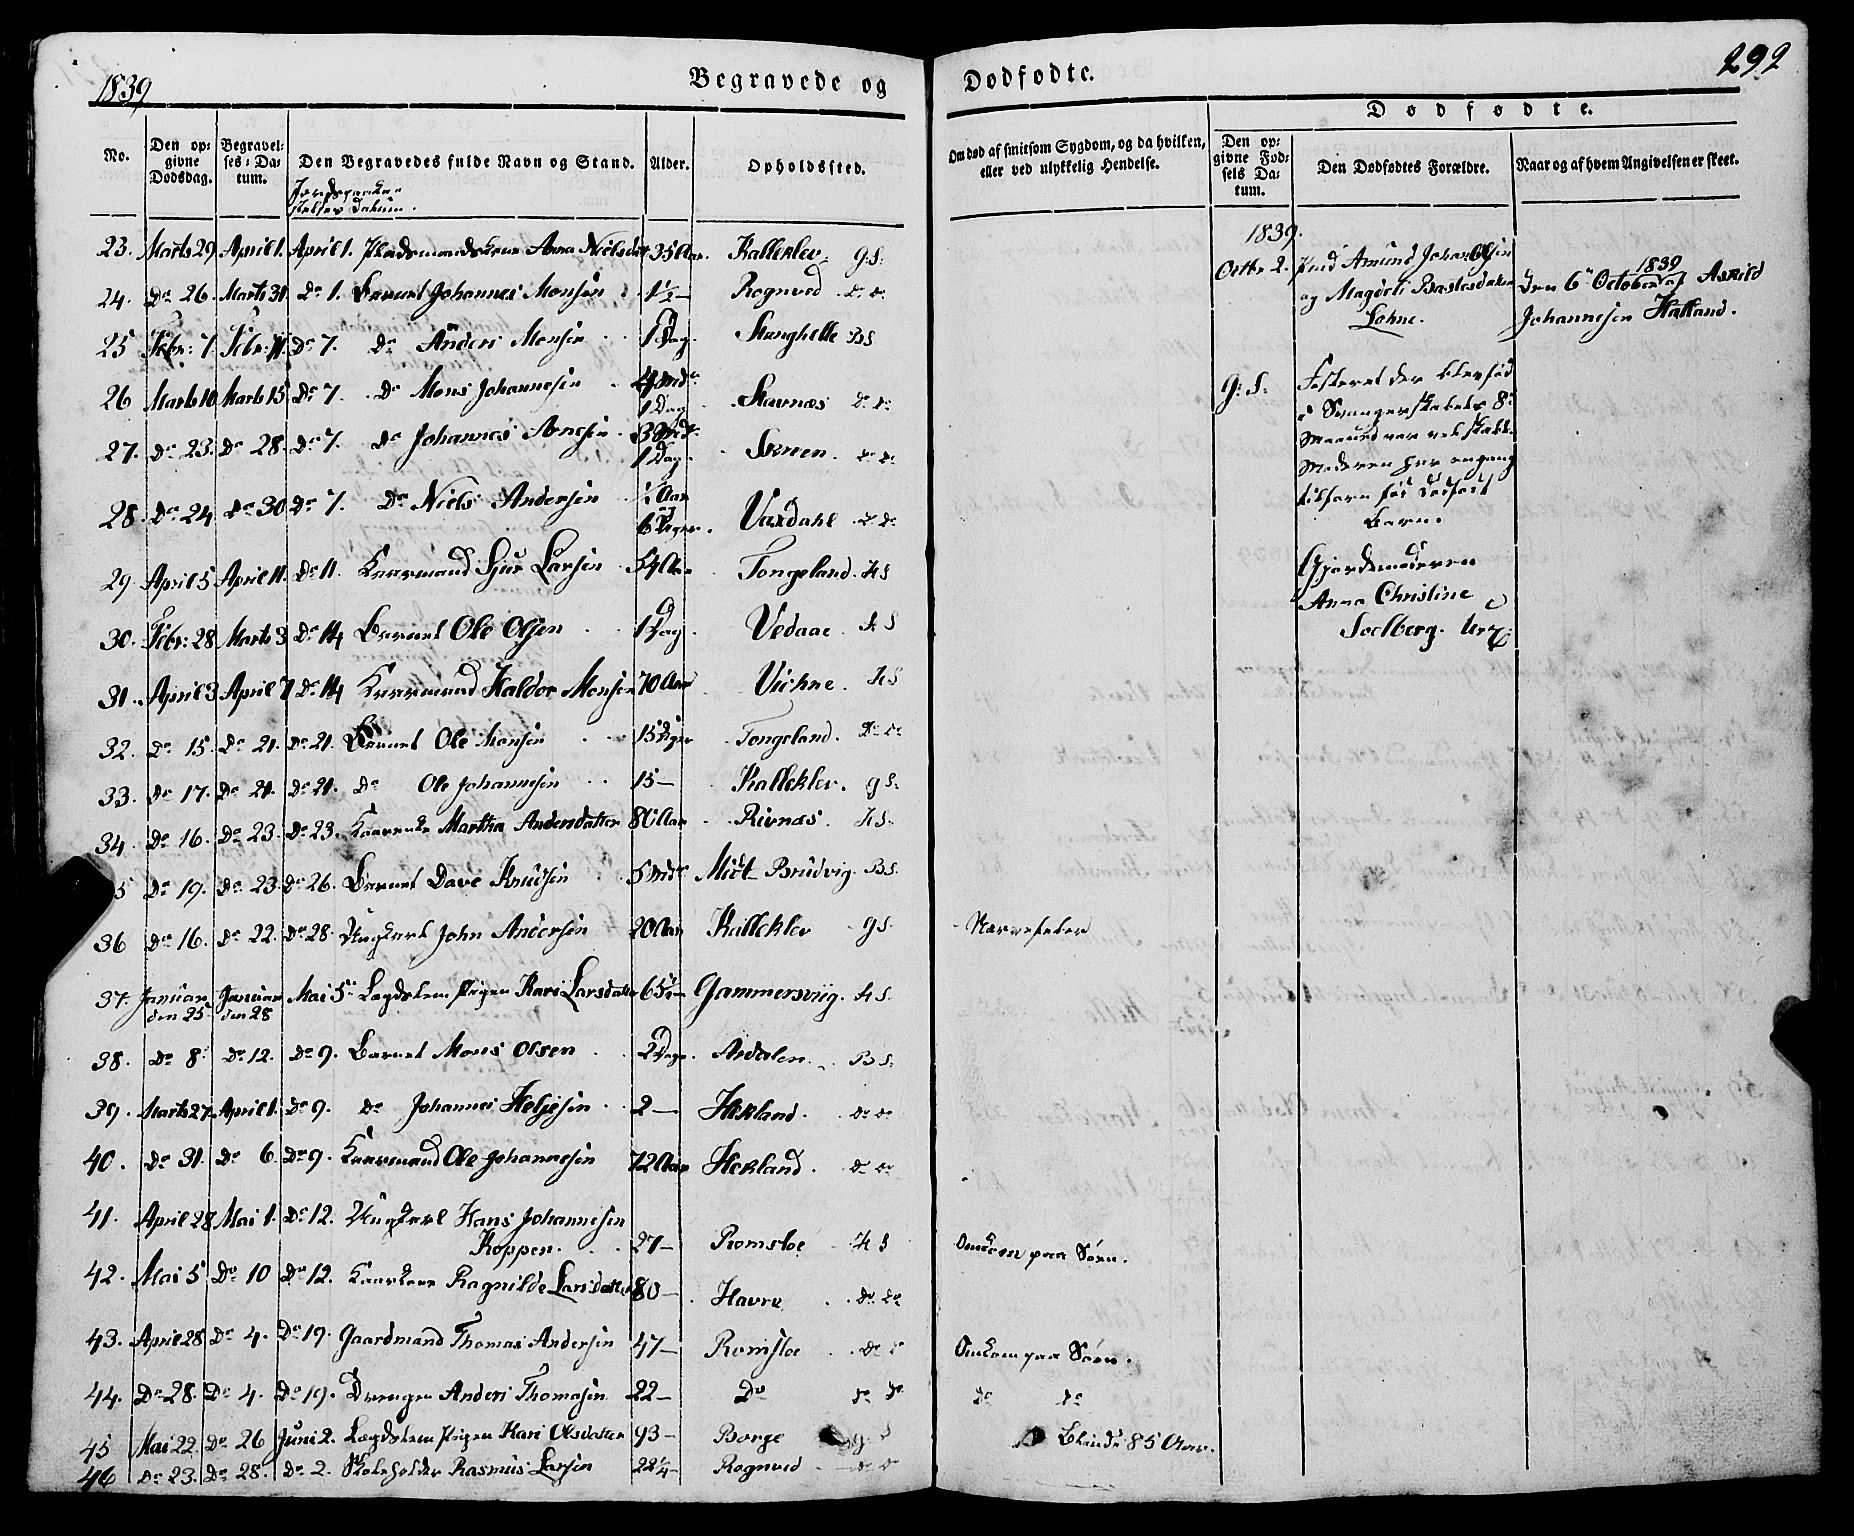 1839
Begravede og
Dødfødte.
292
Dødfødte.
No.
Den opgivne Dødsdag.
Begravelses-Datum.
Den Begravedes fulde Navn og Stand.
Jordspaakastelses Datum.
Alder.
Opholdssted.
Om død af smitsom Sygdom, og da hvilken, eller ved ulykkelig Hendelse.
Den opgivne Fødsels Datum.
Den Dødfødtes Forældre.
Naar og af hvem Angivelsen er skeet.
23. Marts 29 April 1. April 1. Pladsmandskone Anna Nielsdr 35 Aar. Kalleklev G.S.
24. Do 26. Marts 31 Do 1. Barnet Johannes Monsen 1½ — Rognved Do Do
25 Febr: 7. Febr: 11. Do 7. Do Anders Monsen 1 Dag. Stanghelle BS
26 Marts 10 Marts 15 Do 7. Do Mons Johannesen 4 Mdr 1 Dag Stavnæs Do Do
27. Do 23. Do 28. Do 7. Do Johannes Arnesen 3 Mdr 1 Dag. Skreen Do Do
28. Do 24 Do 30 Do 7. Do Niels Andersen ½ Aar 6 Uger. Vaxdahl Do Do
29 April 5 April 11. Do 11. Kaarmand Sjur Larsen 54 Aar Tongeland. HS
30. Febr: 28 Marts 3 Do 14 Barnet Ole Olsen 1 Dag. Vedaae HS
31. April 3 April 7 Do 14 Kaarmand Haldor Monsen 70 Aar Viehne. HS
32. Do 15. Do 21. Do 21. Barnet Ole Monsen 15 Uger Tongeland. Do Do
33. Do 17. Do 21. Do 21. Do Ole Johannesen 15 — Kalleklev. G.S.
34. Do 16. Do 23. Do 23. Kaarenke Martha Andersdatter 86 Aar Rivnæs. HS.
5 Do 19. Do 23. Do 26. Barnet Dave Knudsen 5 Mdr Midt Brudvig. BS.
36 Do 16. Do 22. Do 28. Ungkarl John Andersen 20 Aar Kalleklev G.S. Nervefeber
37. Januar den 25 Januar den 28 Mai 5. Lægdslem Pigen Kari Larsdatter 65½ — Gammersviig. HS.
38. Do 8. Do 12. Do 9. Barnet Mons Olsen 2 Dage Ardalen. BS.
39. Marts 27. April 1. Do 9. Do Johannes Heljesen 2 — Hekland. Do Do
40. Do 31. Do 6. Do 9. Kaarmand Ole Johannesen 72 Aar Hekland. Do Do
41. April 28 Mai 1. Do 12. Ungkarl Hans Johannesen
Koppen. 27 — Romsloe HS Omkom paa Søen.
42. Mai 5 Do 10 Do 12. Kaarkone Ragnilde Larsdatter 80 — Havre. Do Do
43. April 28 Do 4. Do 19. Gaardmand Thomas Andersen 47 — Romsloe Do Do Omkom paa Søen.
44. Do 28. Do 4. Do 19. Drengen Anders Thomasen 22 — Do Do Do Do Do
45 Mai 22. Do 26 Juni 2. Lægdslem Pigen Kari Olsdatter 93 — Borge G.S Blind i 85 Aar.
46 Do 23. Do 28. Do 2. Skoleholder Rasmus Larsen 22¼ — Rognved Do Do
1839.
Octbr 2. Amund Johannesen
og Magdeli Bastesdatter
Lohne.
Den 6te October 1839 af Askild
Johannesen Hatland.
G: S:
Fosteret der blev fød
i Svangerskabets 8de
Maaned var velskabt.
Moderen har engang
tilforn fød dødfødt
Barn.
Gjordemoderen
Anna Christine
Soelberg.